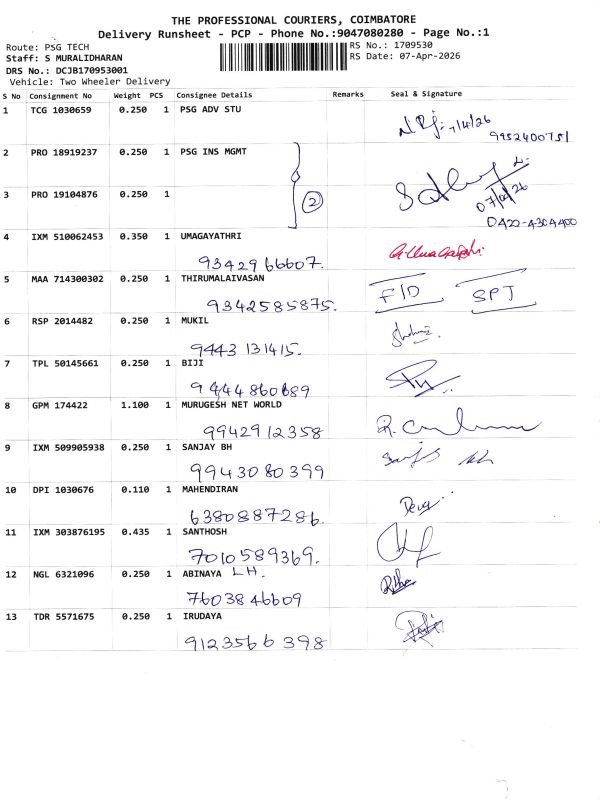 THE PROFESSIONAL COURIERS, COIMBATORE
Delivery Runsheet - PCP - Phone No.:9047080280 - Page No.:1
Route: PSG TECH
Staff: S MURALIDHARAN
DRS No.: DCJB170953001
Vehicle: Two Wheeler Delivery
RS No.: 1709530
RS Date: 07-Apr-2026
S No Consignment No Weight PCS Consignee Details Remarks Seal & Signature
1 TCG 1030659 0.250 1 PSG ADV STU
7/4/26
9952400751
2 PRO 18919237 0.250 1 PSG INS MGMT
3 PRO 19104876 0.250 1
2
07/04/26
0422-4304400
4 IXM 510062453 0.350 1 UMAGAYATHRI
9342966607.
5 MAA 714300302 0.250 1 THIRUMALAIVASAN
9342585875.
F/D SPJ
6 RSP 2014482 0.250 1 MUKIL
9443 131415.
7 TPL 50145661 0.250 1 BIJI
9444860689
8 GPM 174422 1.100 1 MURUGESH NET WORLD
9942912358
9 IXM 509905938 0.250 1 SANJAY BH
9943080399
10 DPI 1030676 0.110 1 MAHENDIRAN
6380887286.
11 IXM 303876195 0.435 1 SANTHOSH
7010589369.
12 NGL 6321096 0.250 1 ABINAYA LH.
7603846609
13 TDR 5571675 0.250 1 IRUDAYA
9123566398